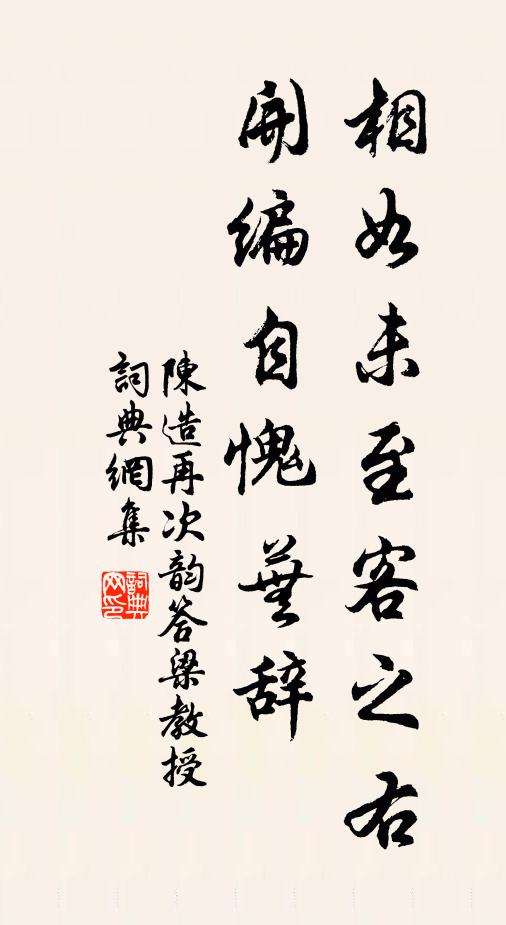 相如未至客之右
開編自愧蕪辞
陳造再次韵答梁教授
詞典網集
詞典网印